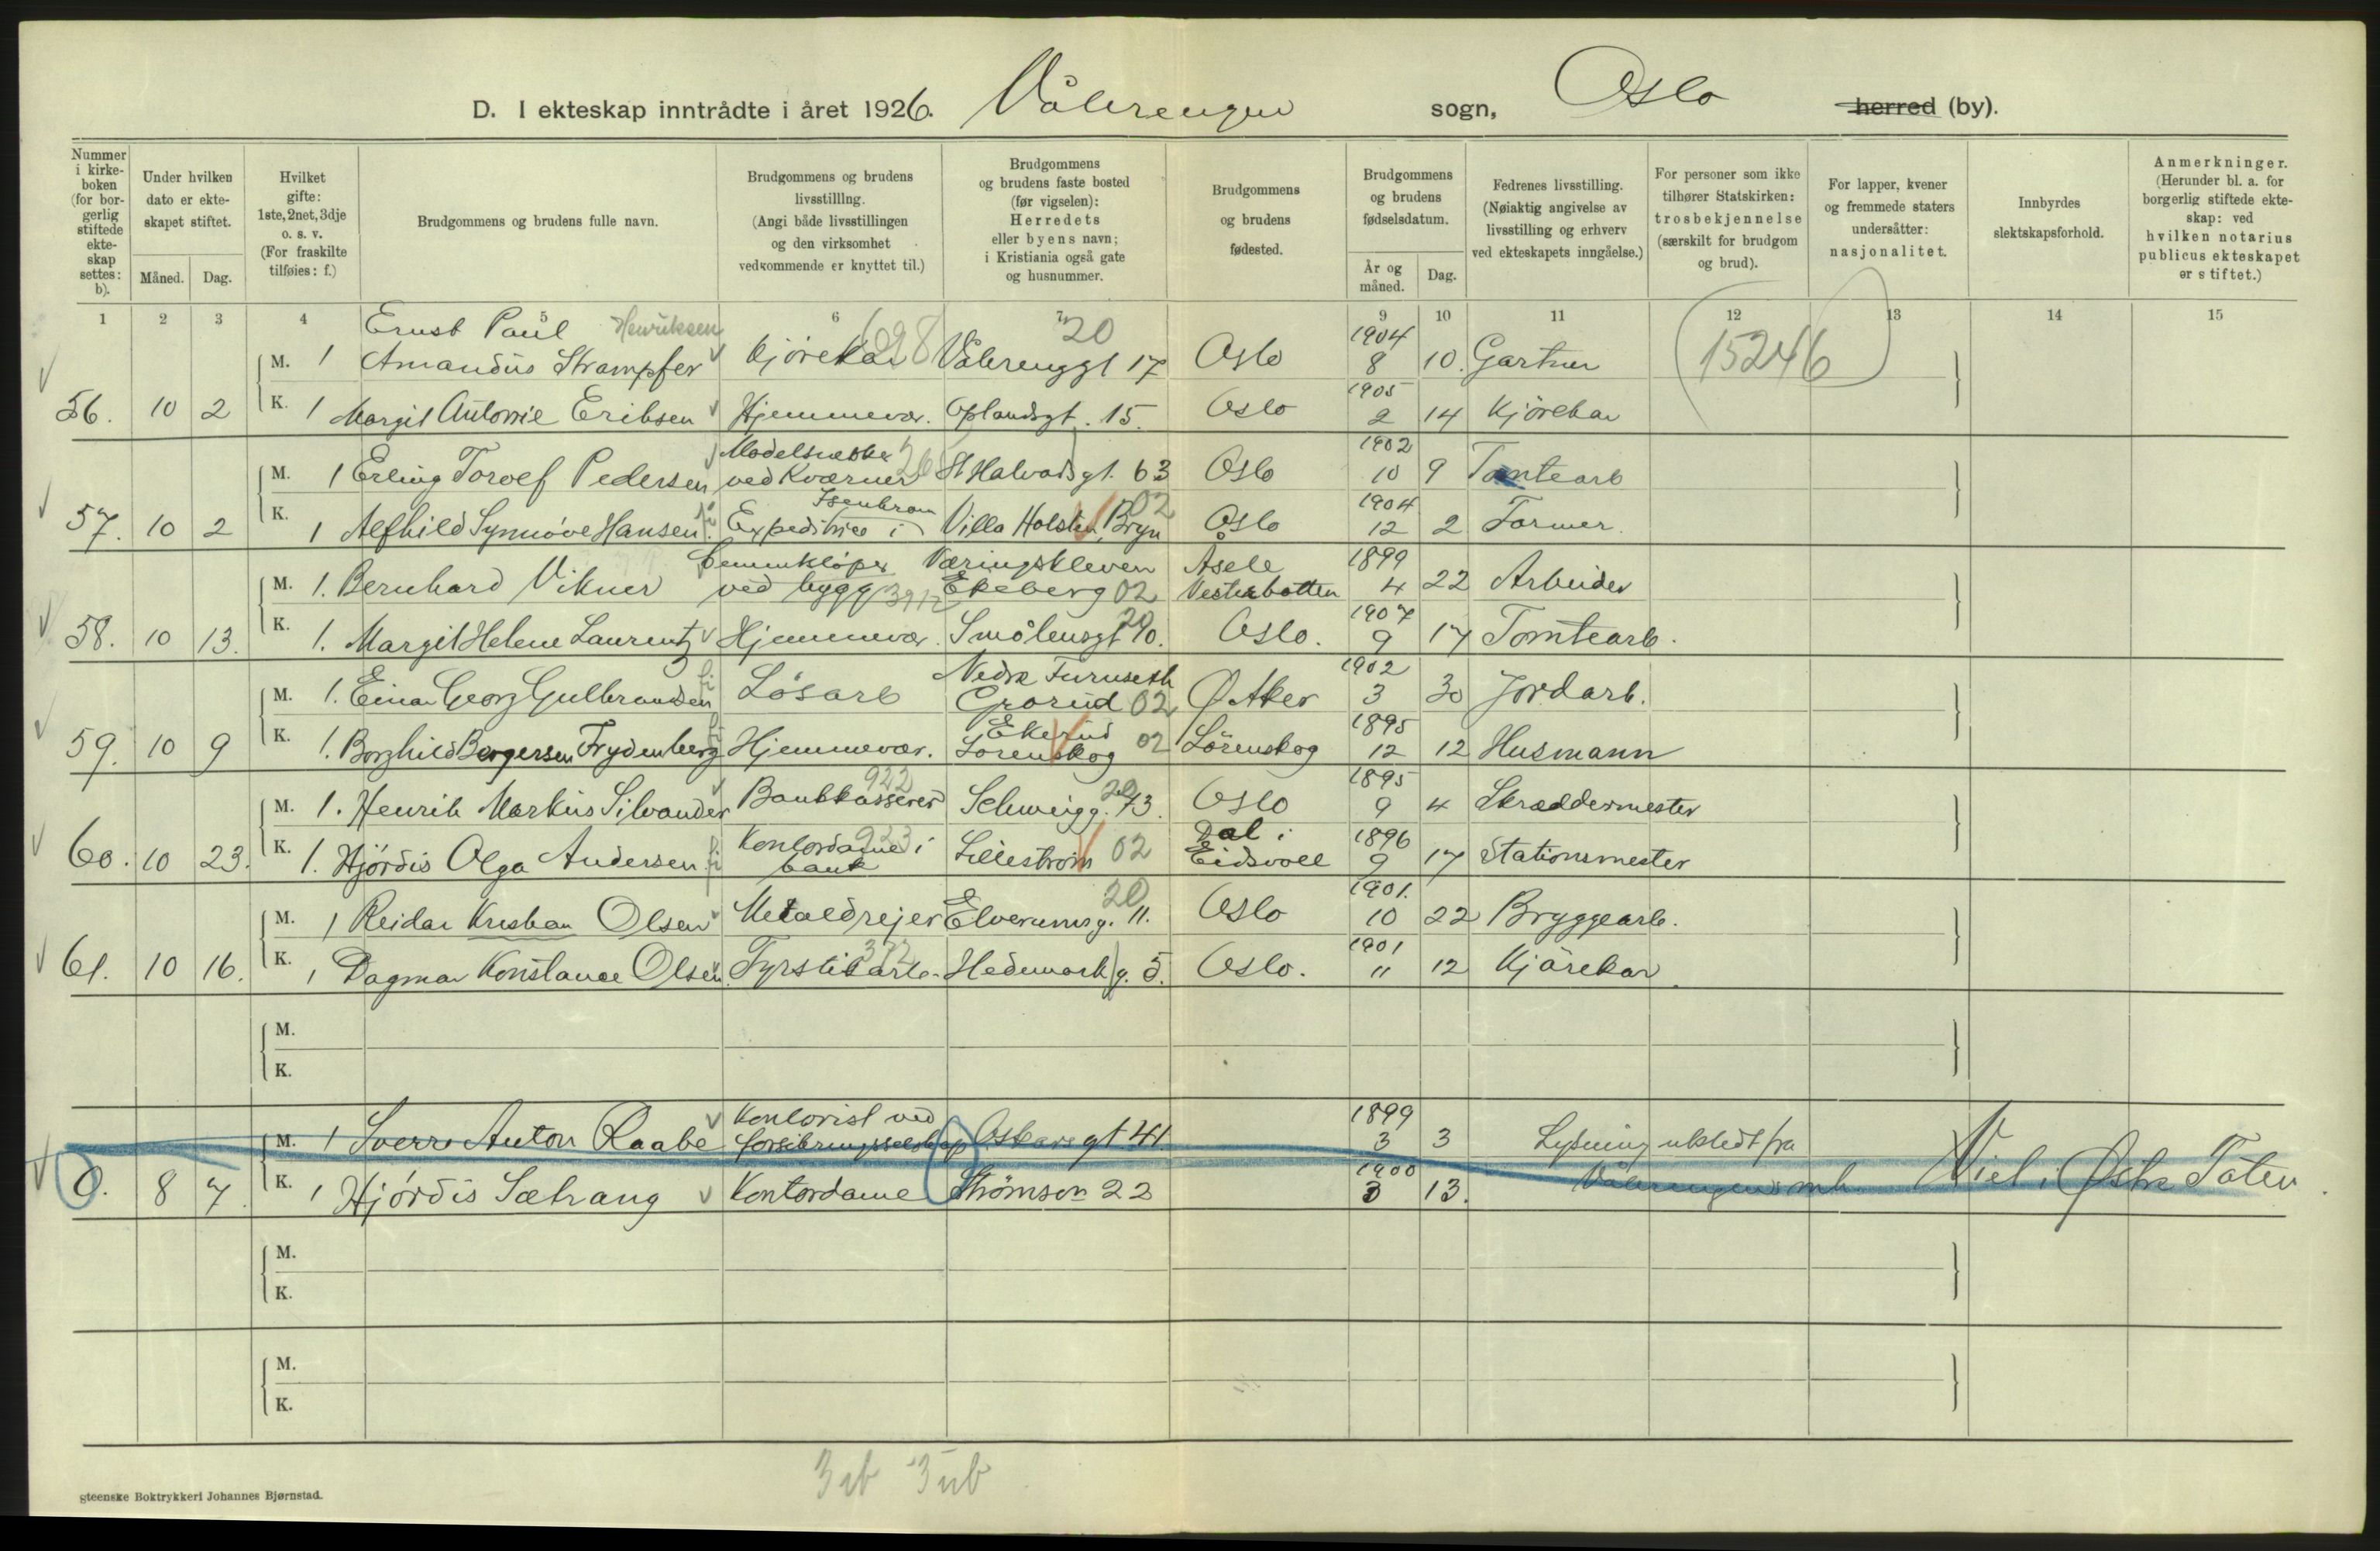 D. I ekteskap inntrådte i året 1926. Vålerengen sogn, Oslo herred (by).
Nummer i kirke-boken (for bor-gerlig stiftede ekte-skap settes: b).
Under hvilken dato er ekte-skapet stiftet.
Måned. Dag.
Hvilket gifte: 1ste, 2net, 3dje o. s. v. (For fraskilte tilføies: f.)
Brudgommens og brudens fulle navn.
Brudgommens og brudens livsstilllng. (Angi både livsstillingen og den virksomhet vedkommende er knyttet til.)
Brudgommens og brudens faste bosted (før vigselen): Herredets eller byens navn; i Kristiania også gate og husnummer.
Brudgommens og brudens fødested.
Brudgommens og brudens fødselsdatum.
År og måned. Dag.
Fedrenes livsstilling. (Nøiaktig angivelse av livsstilling og erhverv ved ekteskapets inngåelse.)
For personer som ikke tilhører Statskirken: trosbekjennelse (særskilt for brudgom og brud).
For lapper, kvener og fremmede staters undersåtter: nasjonalitet.
Innbyrdes slektskapsforhold.
Anmerkninger. (Herunder bl. a. for borgerlig stiftede ekte-skap: ved hvilken notarius publicus ekteskapet er stiftet.)
1 2 3 4 5 6 7 9 10 11 12 13 14 15
Ernst Paul Henriksen 698 20 1904 15246
M. 1 Amandus Strampfer Kjørekar Vålerenggt 17 Oslo 8 10. Gartner
1905
56. 10 2 K. 1 Margit Antonie Eriksen Hjemmevær. Oplandsgt. 15. Oslo 2 14 Kjörekar
Modelsnekker 26 1902
M. 1 Erling Torolf Pedersen ved Kværner St Halvards gt. 63 Oslo 10 9 Tomtearb
Isenkram 02 1904
57. 10 2 K. 1 Alfhild Synnøve Hansen Expeditrice i Villa Holsten, Bryn Oslo 12 2 Former.
Væringskleven Åsele 1899
M. 1. Bernhard Vikner ved bygg Ekeberg 02 Vesterbotten 4 22 Arbeider
20 1907
58. 10 13. K. 1. Margit Helene Laurentz Hjemmevær. Smålensgt 10. Oslo. 9 17 Tomtearb.
Nedre Furuseth 1902
M. 1. Einar Georg Gulbrandsen Løsarb Grorud 02 Ø. Aker 3 30 Jordarb.
Ekerud 1895
59. 10 9 K. 1. Borghild Borgersen Frydenberg Hjemmevær. Lørenskog 02 Lørenskog 12 12 Husmann
922 20 1895
M. 1. Henrik Markus Silvander Bankkasserer Schweigg. 73. Oslo 9 4 Skræddermester
Kontordame i 923 Dal i 1896
60. 10 23. K. 1. Hjördis Olga Andersen bank Lillestrøm 02 Eidsvoll 9 17 Stationsmester
20 1901.
M. 1 Reidar Kristian Olsen Metaldrejer Elverumsg. 11. Oslo 10 22 Bryggearb.
372 1901
61. 10 16. K. 1 Dagmar Konstance Olsen Fyrstikarb. Hedemarkg. 5. Oslo. 11 12 Kjørekar.
M.
K.
Kontorist ved 1899
M. 1 Sverre Anton Raabe forsikringsselskap Oskarsgt 41. 3 3 Lysning utstedt fra
1900
0. 8 7. K. 1 Hjördis Sætrang Kontordame Strømsvn 22 3 13. Vålerengens mh. Viet i Østre Toten.
M.
K.
M.
K.
Steenske Boktrykkeri Johannes Bjørnstad.